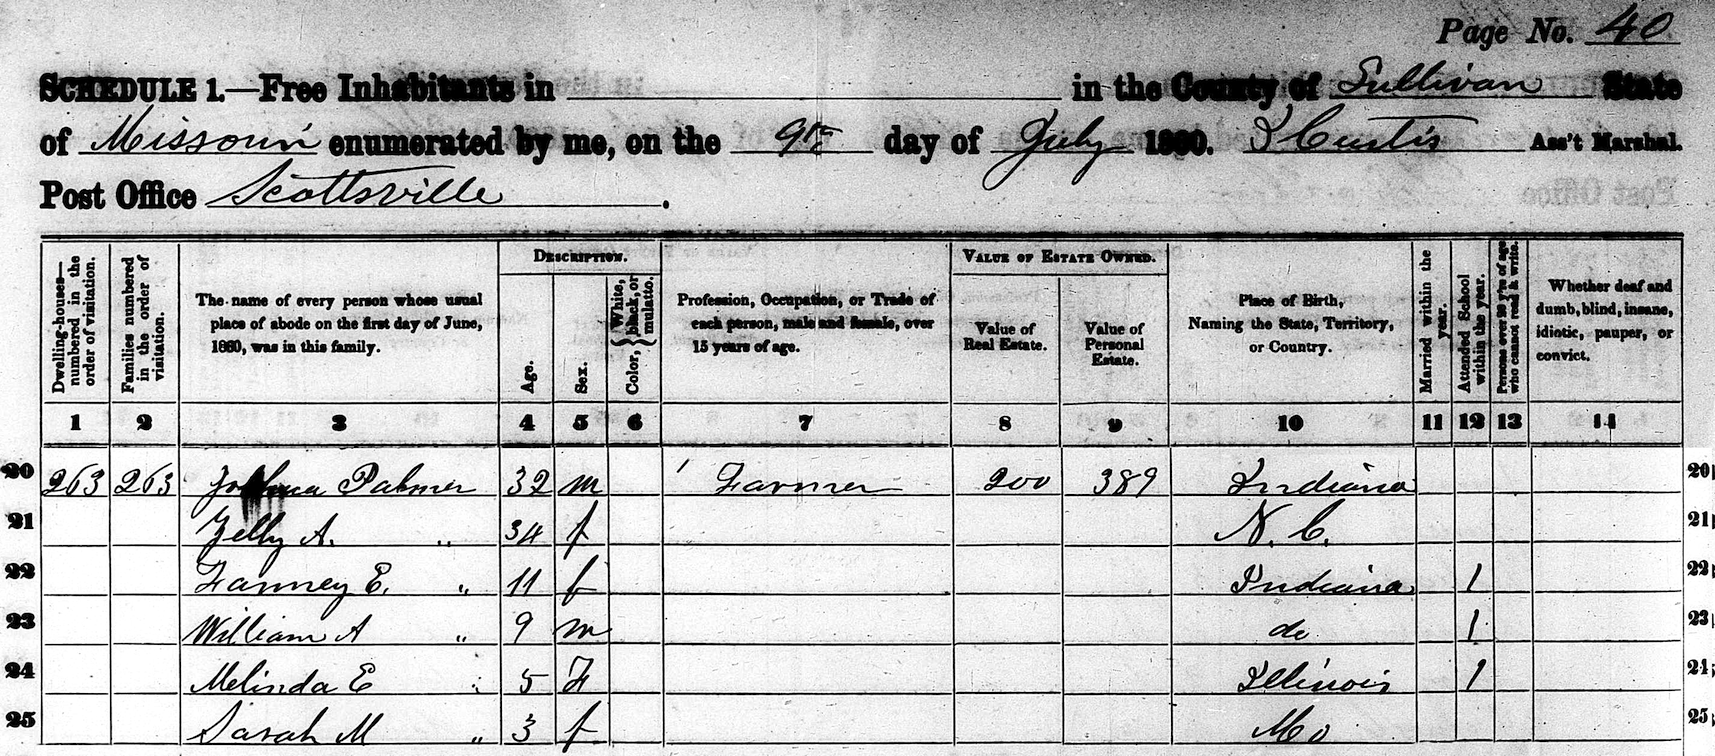 Page No. 40
SCHEDULE 1.—Free Inhabitants in in the County of Sullivan State
of Missouri enumerated by me, on the 9th day of July 1860. Curtis Ass't Marshal.
Post Office Scottsville.
Dwelling-houses—numbered in the order of visitation.
Families numbered in the order of visitation.
The name of every person whose usual place of abode on the first day of June, 1860, was in this family.
DESCRIPTION.
Age.
Sex.
Color, { White, black, or mulatto.
Profession, Occupation, or Trade of each person, male and female, over 15 years of age.
VALUE OF ESTATE OWNED.
Value of Real Estate.
Value of Personal Estate.
Place of Birth, Naming the State, Territory, or Country.
Married within the year.
Attended School within the year.
Persons over 20 y'rs of age who cannot read & write.
Whether deaf and dumb, blind, insane, idiotic, pauper, or convict.
1 2 3 4 5 6 7 8 9 10 11 12 13 14
20 263 263 Joshua Palmer 32 m Farmer 200 389 Indiana 20
21 A. " 34 f N. C. 21
22 Fanney E. " 11 f Indiana 1 22
23 William A " 9 m do 1 23
24 Melinda E " 5 F Illinois 1 24
25 Sarah M " 3 f Mo 25